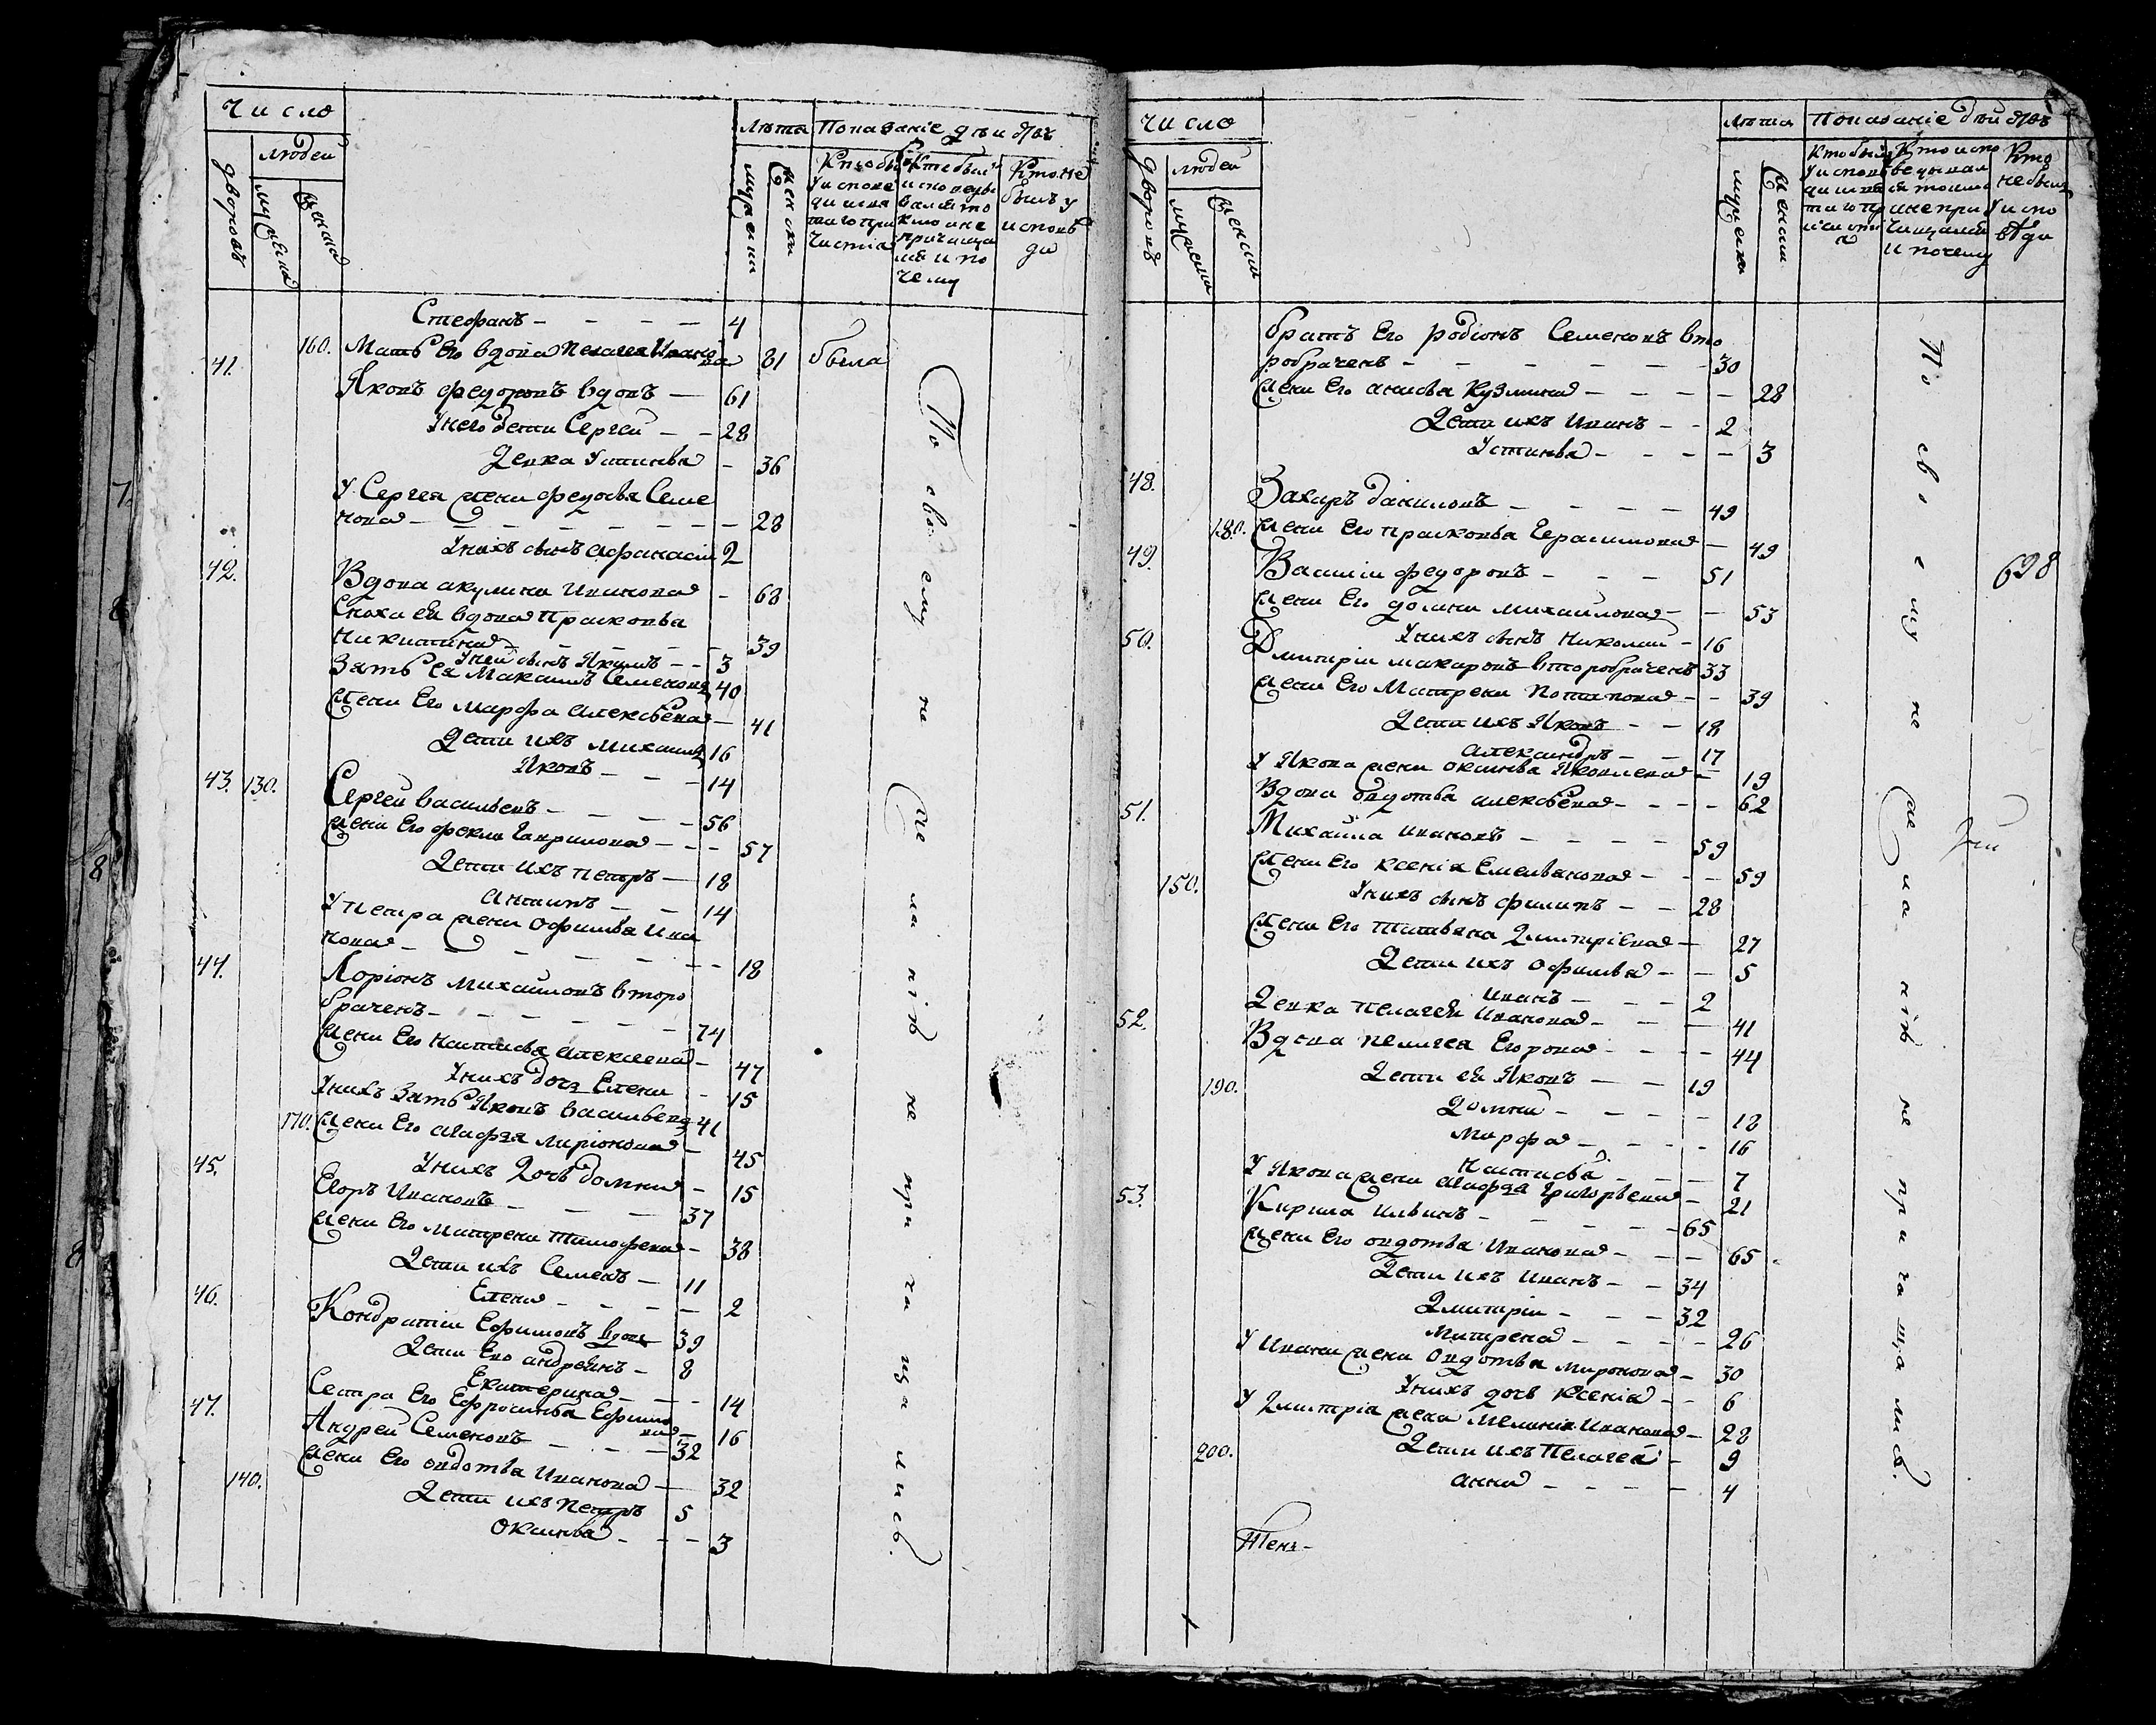 Число
Лѣта Показаніе дѣйства
людей
дворовъ
мужеска
женска
мужеска
женска
Кто былъ у исповеди и святаго причастія
Кто был исповедывался а кто и не причащался и по чему
Кто не былъ у исповѣди
Стефанъ - - - - 4
160. Мать Его вдова Пелагея Иванова 81 была
41. Яковъ Федоровъ вдовъ — 61
У него дети Сергей - - 28
Девка Устинья - 36
У Сергея жена Федосья Семе
нова - - - - - - - 28
У них сынъ Афанасiй 2
42. Вдова Акулина Иванова - 68
Сноха ей вдова Прасковья
Никитина - - - - - 39
У ней сынъ Якимъ - - 3
Зять Ея Максимъ Семеновъ 40
Жена Его Марфа Алексѣева - 41
Дети ихъ Михаилъ 16
Яковъ - - - 14
43. 130. Сергей Васильевъ - - - - 56
Жена Его Фекла Гаврилова - - - 57
Дети ихъ Петръ - 18
Антипъ - - 14
У Петра жена Офимья Ива
нова - - - - - - - 18
44. Ларiонъ Михайловъ второ
браченъ - - - - - - 74
Жена Его Настасья Алексеева - 47
У них дочь Елена - 15
У нихъ Зять Яковъ Васильевъ 41
170. Жена Его Агафья Ларiонова - 45
У них Дочь Домна - 15
45. Егоръ Ивановъ - - - 37
Жена Его Матрена Тимофеева - 38
Дети ихъ Семенъ - 11
Елена - - - - 2
46. Кондратiй Ефимовъ вдовъ 39
Дети Его Андреянъ - 8
Екатерина - - - 14
Сестра Его Ефросинья Ефимо
ва - 16
47. Андрей Семеновъ - - - 32
Жена Его Овдотья Иванова - 32
140. Дети ихъ Петръ 5
Оксинья - - - 3
По своему не желанiю не причащались.
Число
Лѣта Показанiе дѣйства
людей
дворовъ
мужеска
женска
мужеска
женска
Кто был у исповеди и святаго причастiя
Кто исповедывался а кто и не причащался и почему
Кто не былъ у исповѣди
братъ Его Родiонъ Семеновъ вто
робраченъ - - - - - - 30
жена Его Анисья Кузмина - - - - 28
Дети ихъ Иванъ - - 2
Устинья - - - - 3
48. Захаръ Даниловъ - - - - 49
180. Жена Его Прасковья Герасимова - 49
49. Василiй Федоровъ - - - 51
Жена Его Домна Михайлова - - 53
У нихъ сынъ Николай - 16
50. Дмитрiй Макаровъ второбраченъ 33
Жена Его Матрена Потапова - - 39
Дети ихъ Яковъ - - 18
Александръ - - 17
У Якова жена Оксинья Яковлева - 19
Вдова Овдотья Алексѣева - - - - 62
51. Михайла Ивановъ - - - - 59
Жена Его Ксенiя Емельянова - - - 59
150. У нихъ сынъ Филипъ - - 28
Жена Его Татьяна Дмитрiева - 27
Дети ихъ Офимья - - 5
Иванъ - - - 2
Девка Пелагея Иванова - - - 41
52. Вдова Пелагея Егорова - - - - 44
190. Дети ей Яковъ - - 19
Домна - - - - 18
Марфа - - - - 16
Настасья - - - 7
У Якова жена Агафья Григорьева - 21
53. Кирила Ильинъ - - - - - 65
Жена Его Овдотья Иванова - - - 65
Дети ихъ Иванъ - - 34
Дмитрiй - - - 32
Матрена - - - - 26
У Ивана жена Овдотья Миронова - 30
У нихъ дочь Ксенiя - - 6
У Дмитрiя жена Меланiя Иванова - 28
200. Дети ихъ Пелагея - 9
Анна - - - - 4
По своему не желанiю не причащались.
698